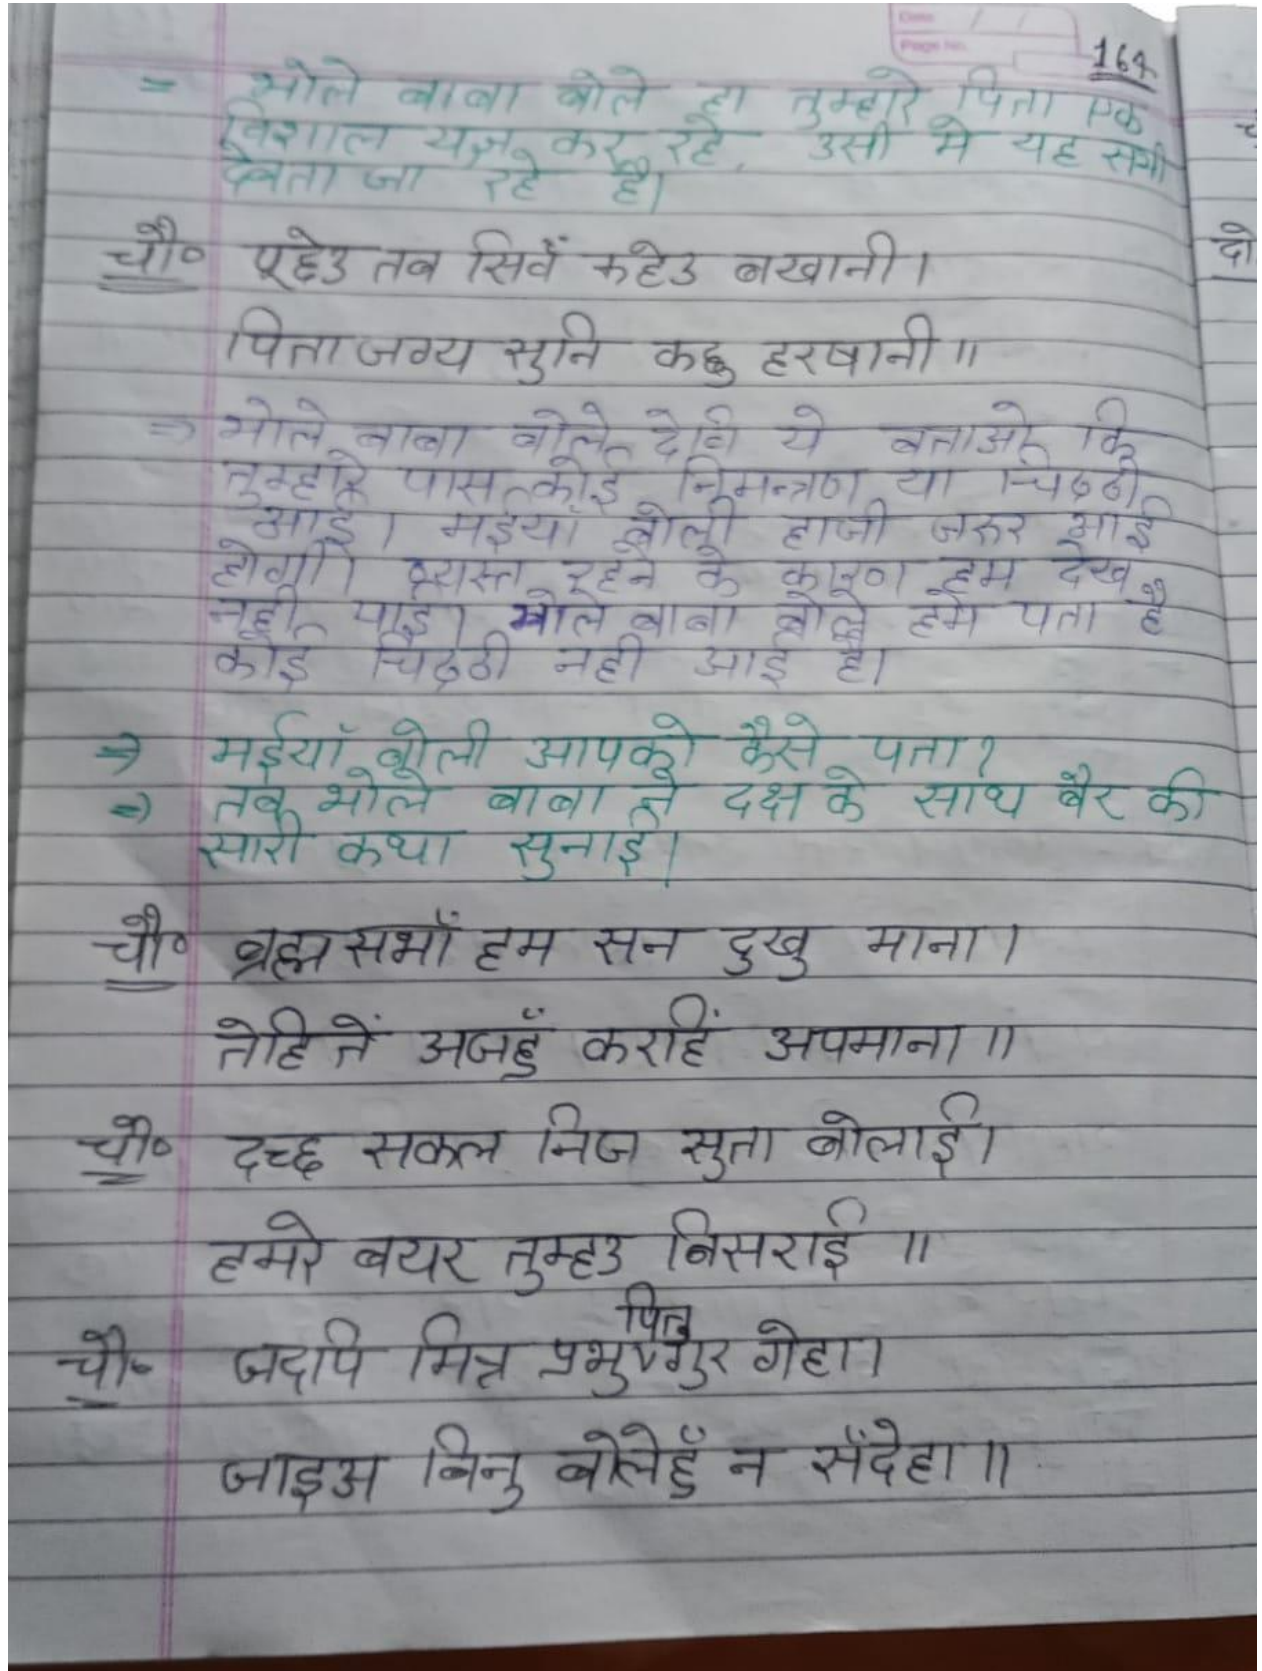 Date / /
Page No.
164
= भोले बाबा बोले हा तुम्हारे पिता एक
विशाल यज्ञ कर रहे, उसी मे यह सभी
देवता जा रहे है।
चौ० पूछेउ तब सिवँ कहेउ बखानी।
पिता जग्य सुनि कछु हरषानी॥
⇒ भोले बाबा बोले देवि ये बताओ कि
तुम्हारे पास कोई निमन्त्रण या चिठ्ठी
आई। मईयाँ बोली हाजी जरूर आई
होगी। व्यस्त रहने के कारण हम देख
नही पाइ। भोले बाबा बोले हमे पता है
कोई चिठ्ठी नही आई है।
⇒ मईयाँ बोली आपको कैसे पता?
⇒ तब भोले बाबा ने दक्ष के साथ बैर की
सारी कथा सुनाई।
चौ० ब्रह्म सभाँ हम सन दुखु माना।
तेहि तें अजहुँ करहिं अपमाना॥
चौ० दच्छ सकल निज सुता बोलाई।
हमरे बयर तुम्हउ बिसराई॥
पितु
चौ० जदपि मित्र प्रभु गुर गेहा।
जाइअ बिनु बोलेहुँ न सँदेहा॥
दो